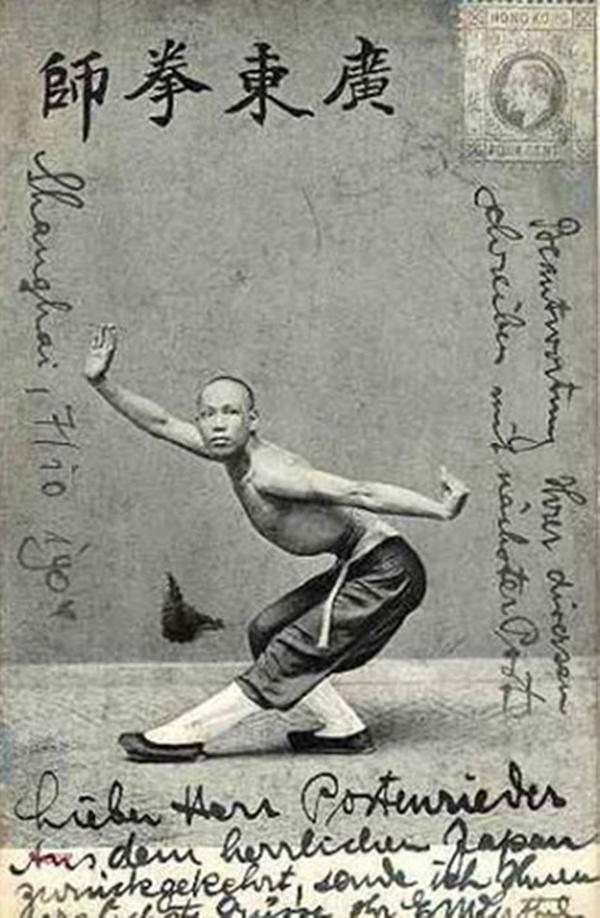 廣東拳師
HONG KONG
FOUR CENTS
Shanghai, 7/10 190
Beantwortung Ihrer diversen
schreiben mit nächster Post
Lieber Herr Postenrieder
Aus dem herrlichen Japan
zurückgekehrt, sende ich Ihnen
herzlichste Grüsse Ihr